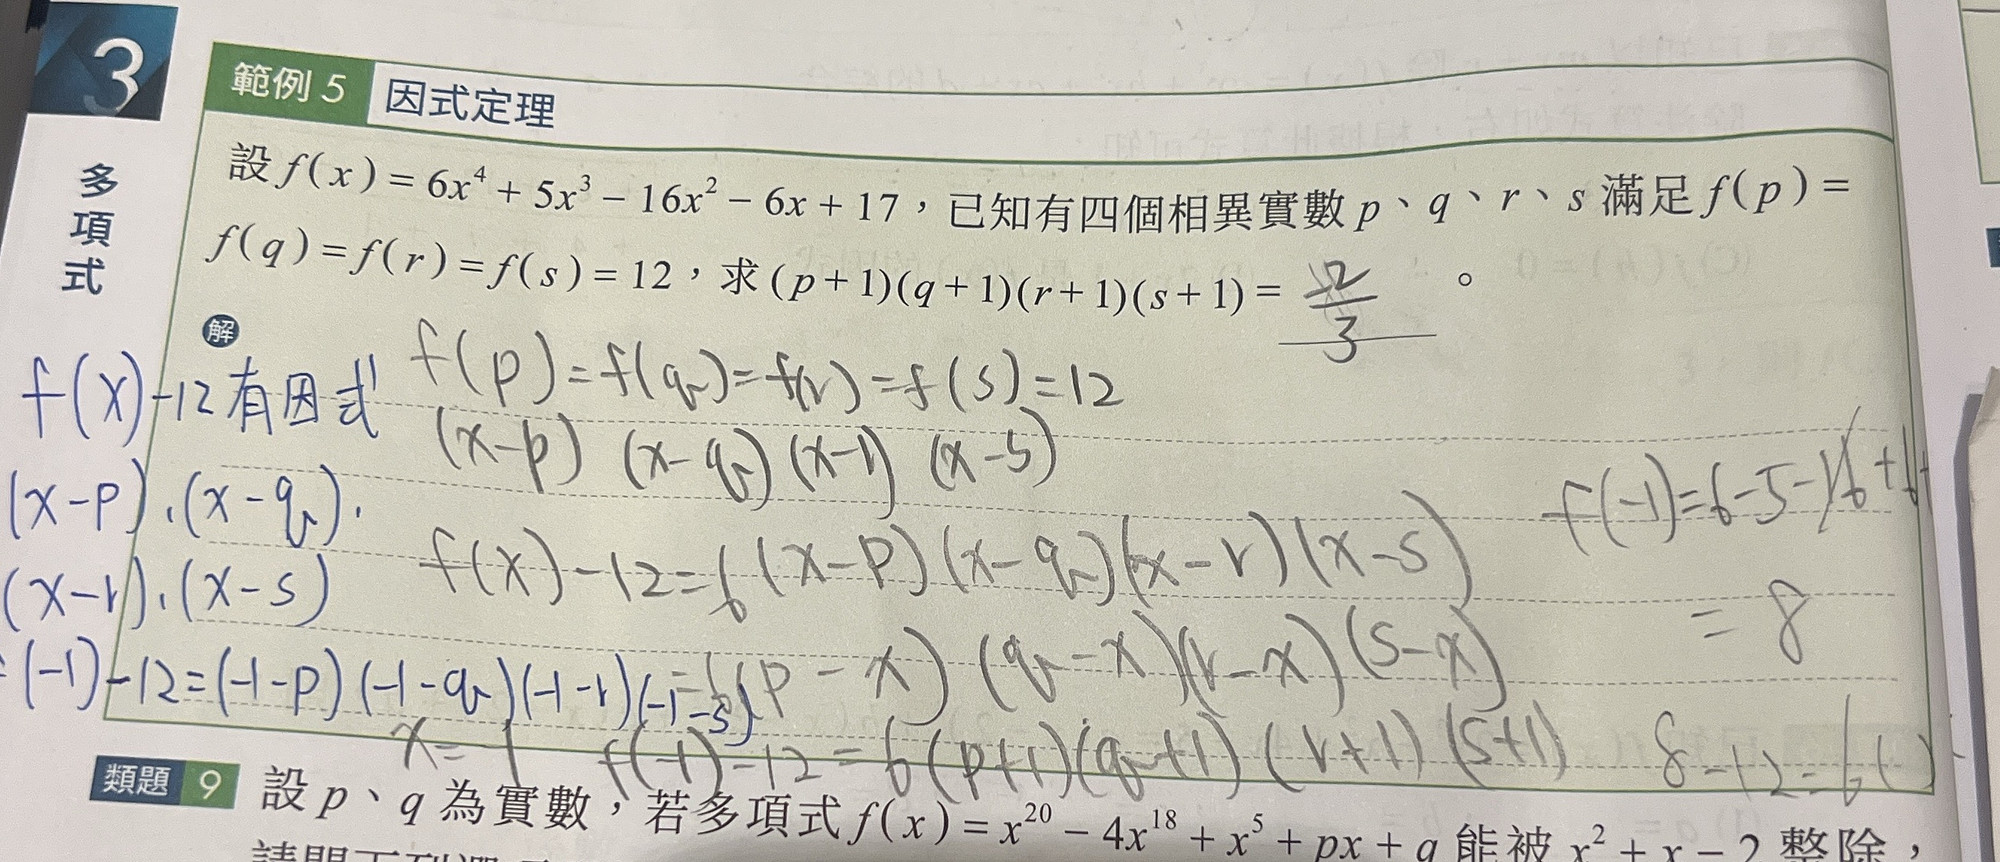 3
多項式
範例 5 因式定理
設 f(x) = 6x⁴ + 5x³ − 16x² − 6x + 17，已知有四個相異實數 p、q、r、s 滿足 f(p) =
f(q) = f(r) = f(s) = 12，求 (p+1)(q+1)(r+1)(s+1) = 2/3 。
解
f(p) = f(q) = f(r) = f(s) = 12
f(x)-12 有因式
(x-p) (x-q) (x-r) (x-s)
(x-p)、(x-q)、
(x-r)、(x-s)
f(x)-12 = 6(x-p)(x-q)(x-r)(x-s)
f(-1) = 6-5-16+6+
= 8
= 6(p-x)(q-x)(r-x)(s-x)
(-1)-12 = (-1-p)(-1-q)(-1-r)(-1-s)
x=-1 f(-1)-12 = 6(p+1)(q+1)(r+1)(s+1)
8-12=6( )
類題 9 設 p、q 為實數，若多項式 f(x) = x²⁰ − 4x¹⁸ + x⁵ + px + q 能被 x² + x − 2 整除，